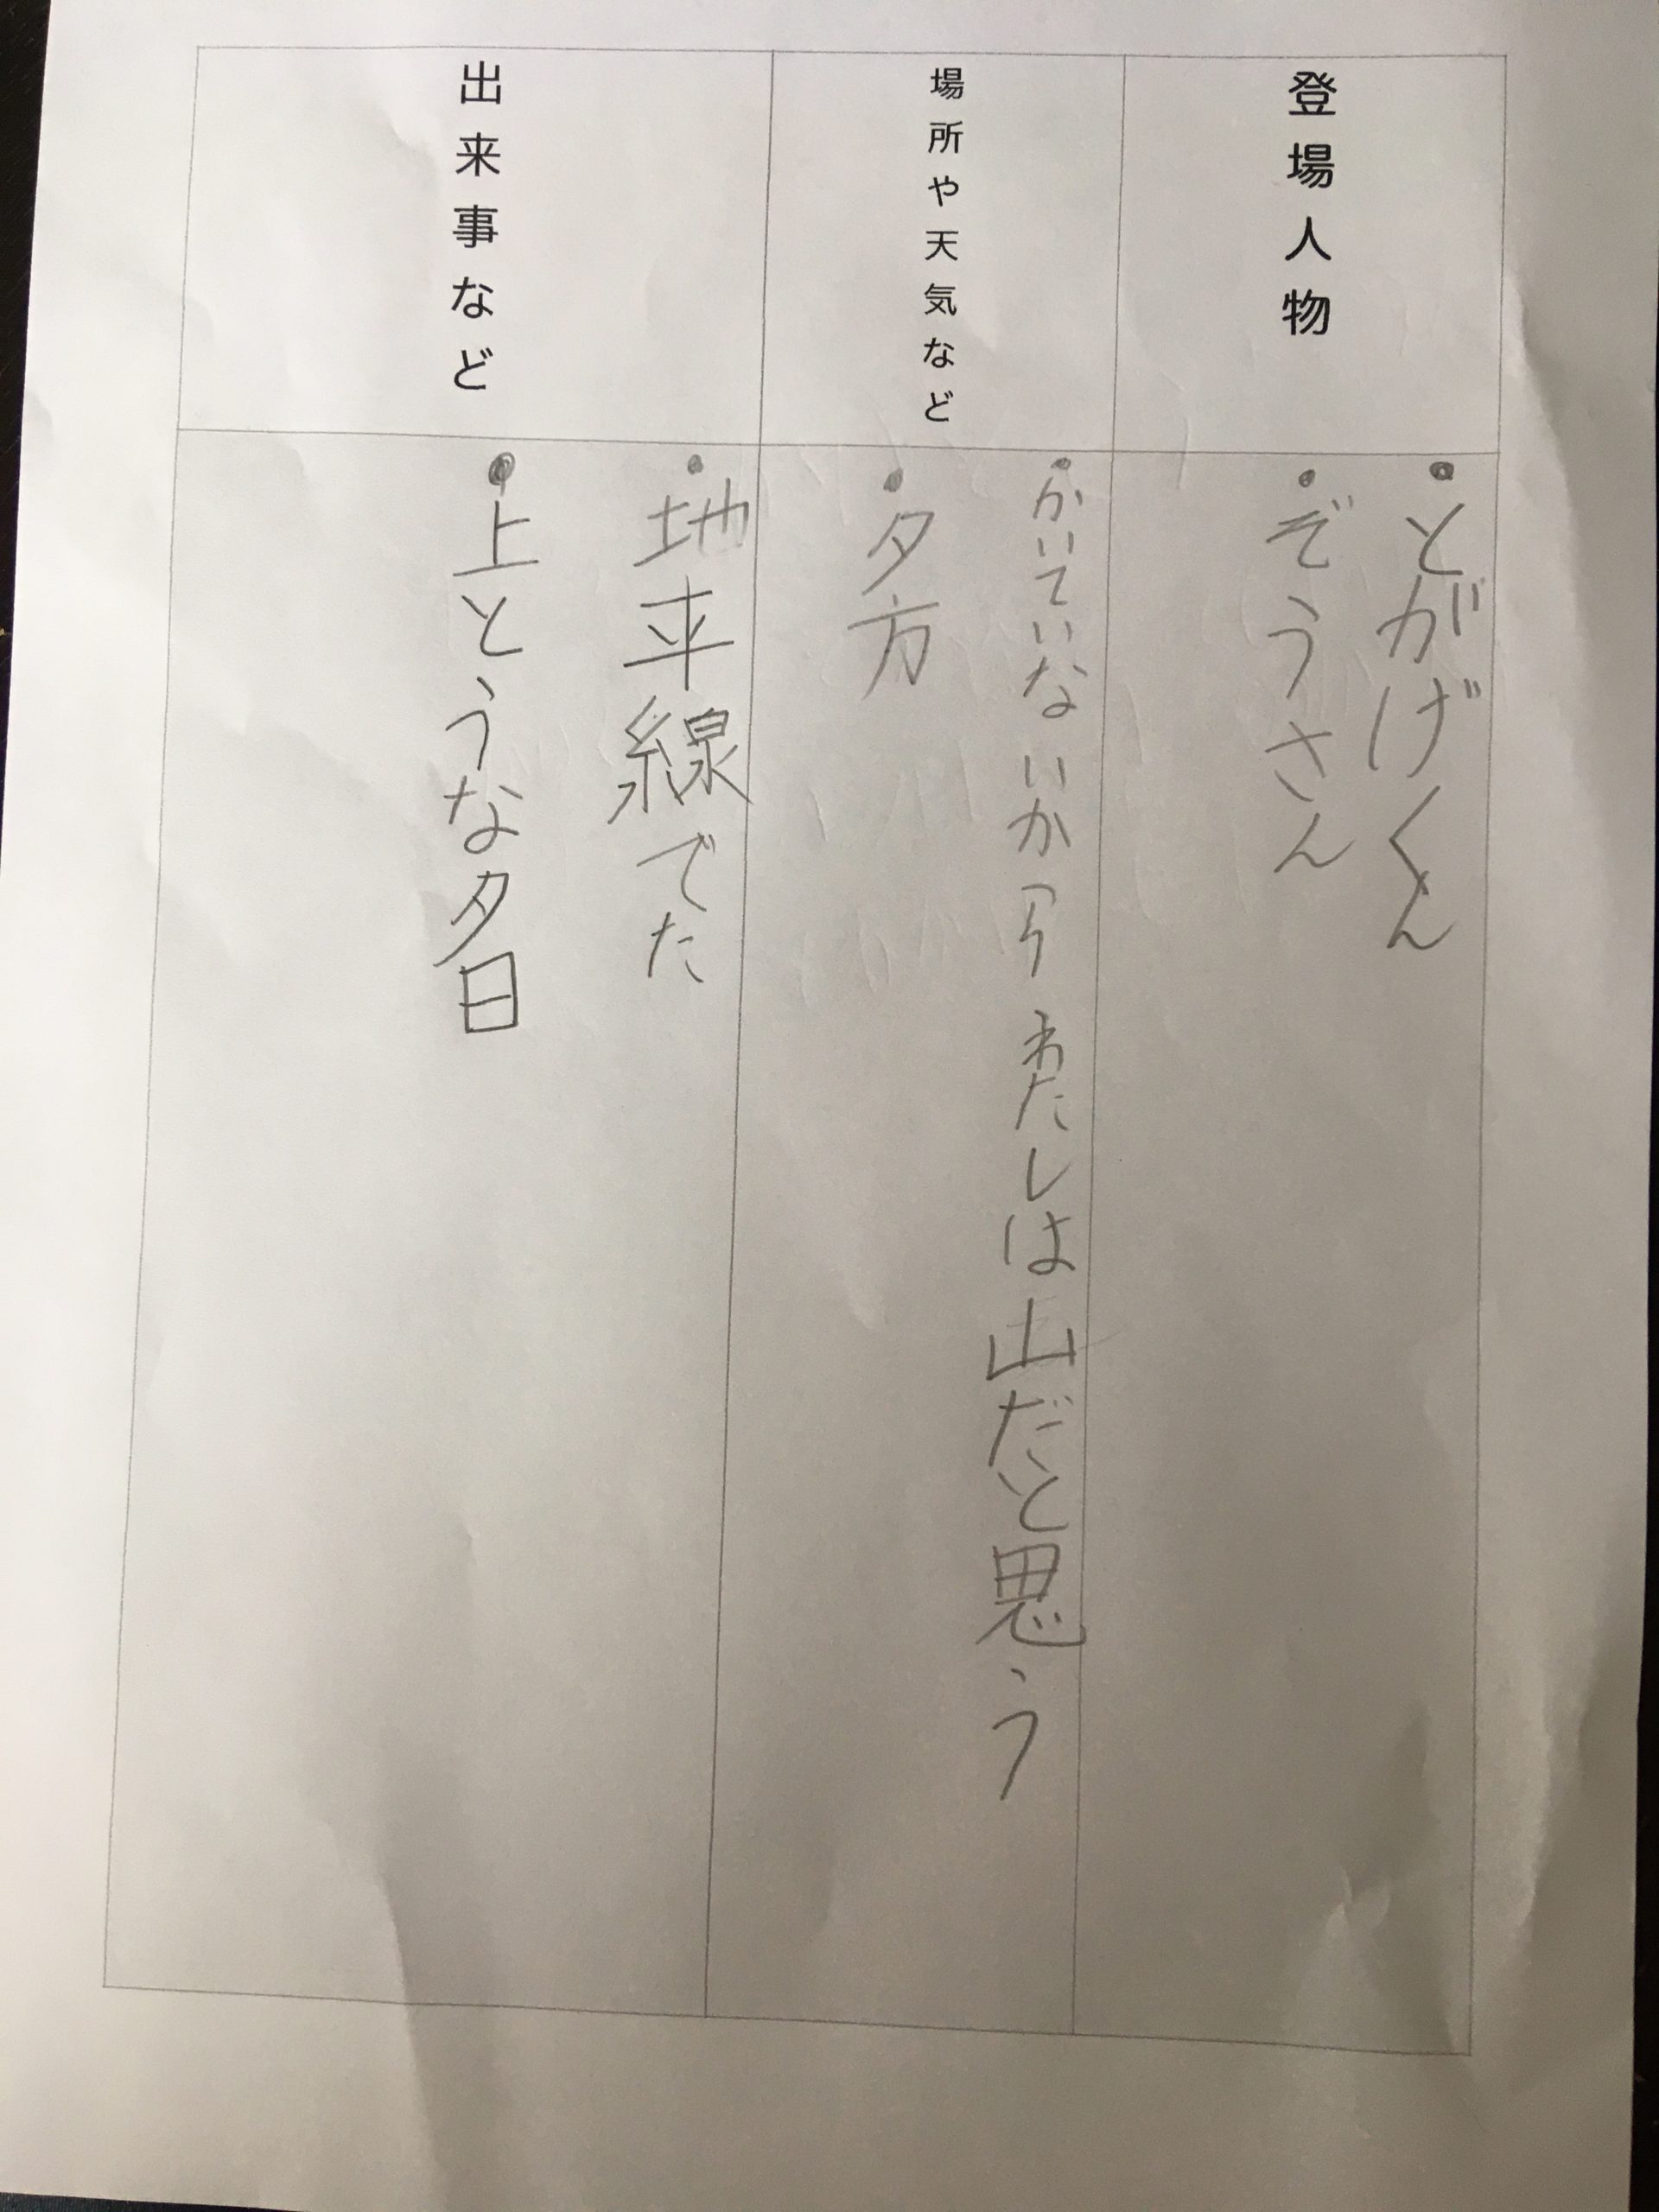 登場人物
・とがげくん
・ぞうさん
場所や天気など
・かいていないからわたしは山だと思う
・夕方
出来事など
・地平線でた
・上とうな夕日